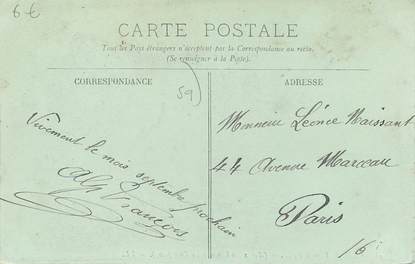 6€
CARTE POSTALE
Tous les Pays étrangers n'acceptent pas la Correspondance au recto.
(Se renseigner à la Poste)
CORRESPONDANCE
59
Vivement le mois septembre prochain
Alp François
ADRESSE
Monsieur Léonce Maissant
44 Avenue Marceau
Paris
16